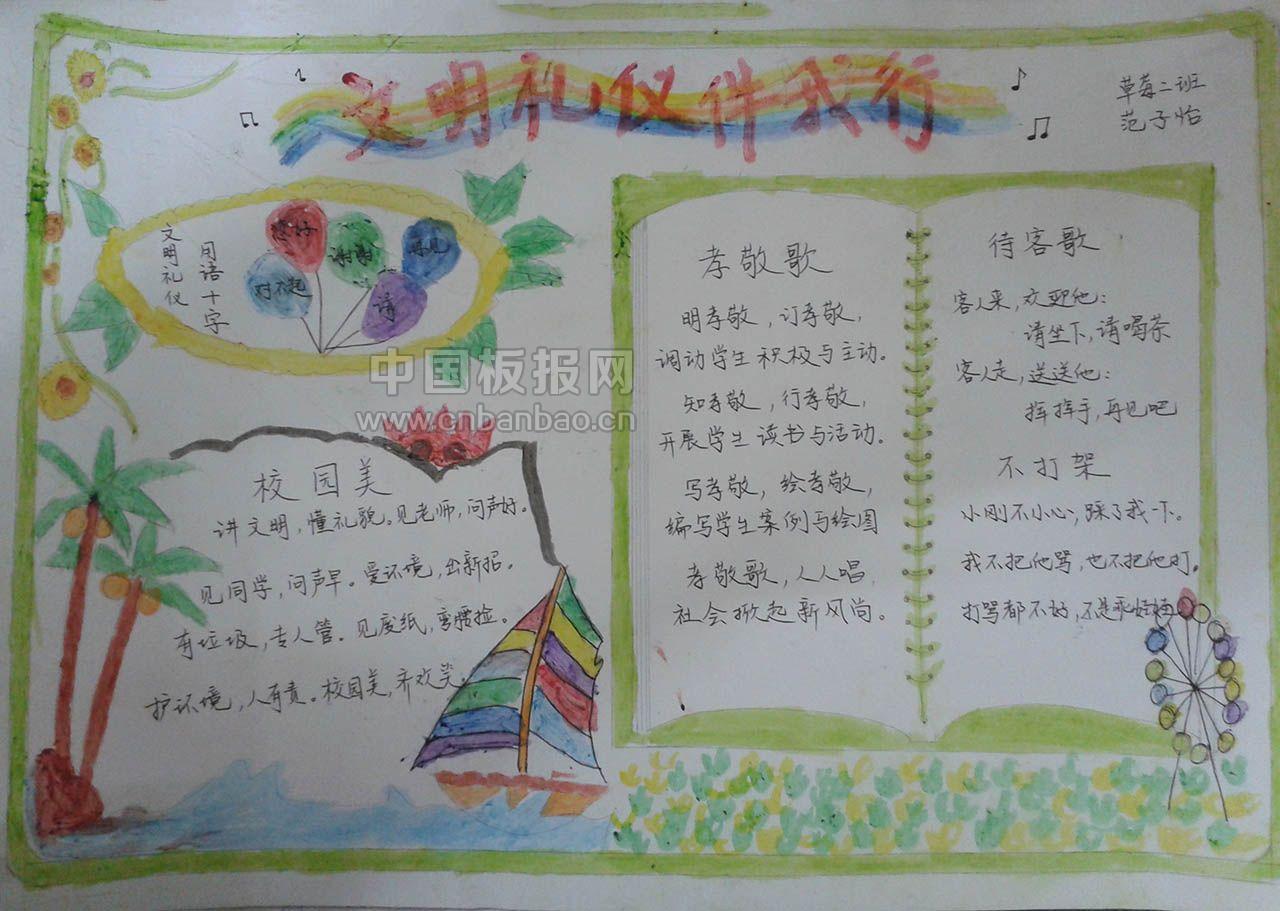 文明礼仪伴我行
草莓二班
范子怡
文明礼仪
用语十字
您好
谢谢
再见
对不起
请
中国板报网
www.cnbanbao.cn
校园美
讲文明，懂礼貌。见老师，问声好。
见同学，问声早。爱环境，出新招。
有垃圾，专人管。见废纸，弯腰捡。
护环境，人有责。校园美，齐欢笑。
孝敬歌
明孝敬，订孝敬，
调动学生积极与主动。
知孝敬，行孝敬，
开展学生读书与活动。
写孝敬，绘孝敬，
编写学生案例与绘图
孝敬歌，人人唱，
社会掀起新风尚。
待客歌
客人来，欢迎他：
请坐下，请喝茶
客人走，送送他：
挥挥手，再见吧
不打架
小刚不小心，踩了我一下。
我不把他骂，也不把他打。
打骂都不好，不是乖娃娃。